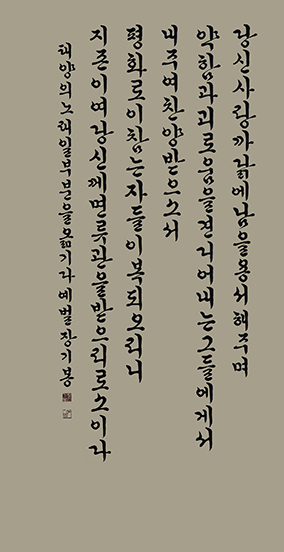 당신사랑까닭에남을용서해주며
약함과괴로움을견디어내는그들에게서
내주여찬양받으소서
평화로이참는자들이복되오리니
지존이여당신께면류관을받으리로소이다
태양의노래일부분을옮기다예벌장기봉